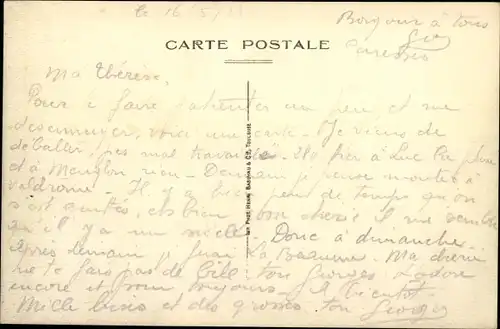 le 16/5/
Bonjour à tous
Caresses
CARTE POSTALE
Ma Thérèse,
Pour faire patienter un peu, et me
desennuyer, voici une carte. Je viens de
deballer, pas mal travaillé. 280 frcs à Luc la pluie
et à Menglon rien. Demain je pense monter à
Valdrome. Il y a bien peu de temps qu'on
s'est quittés, et bien mon cherie il me semble
qu'il y a un siècle. Donc à dimanche
après demain, Ma cherie
ne te fais pas de bile ton Georges t'adore
encore et pour toujours. A bientôt.
Mille bises et des grosses ton Georges
IMP. PHOT. HENRI BASUYAU & CO, TOULOUSE